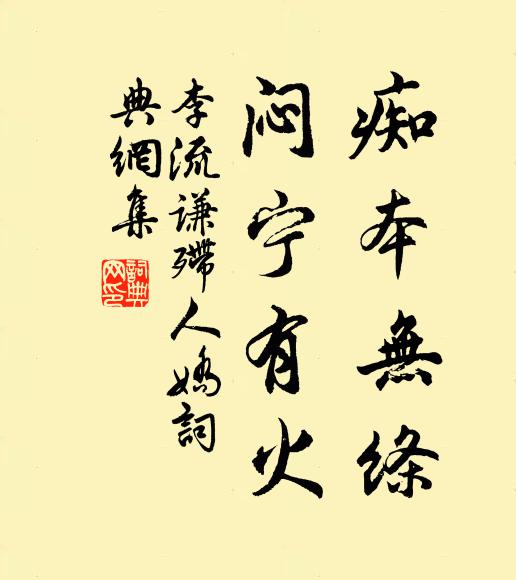 痴本無絛
闷宁有火
李流謙殢人嬌詞
典網集
詞典网印